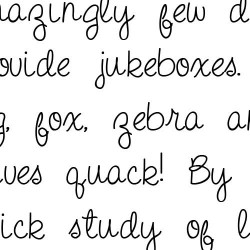 mazingly few d
ovide jukeboxes.
g, fox, zebra an
ves quack! By
ick study of l